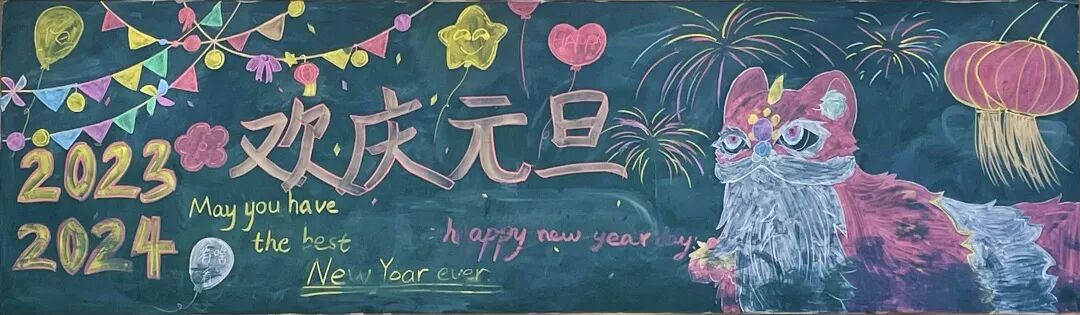 HAPPY
欢庆元旦
2023
2024
May you have
the best
New Yoar ever
happy new year day.